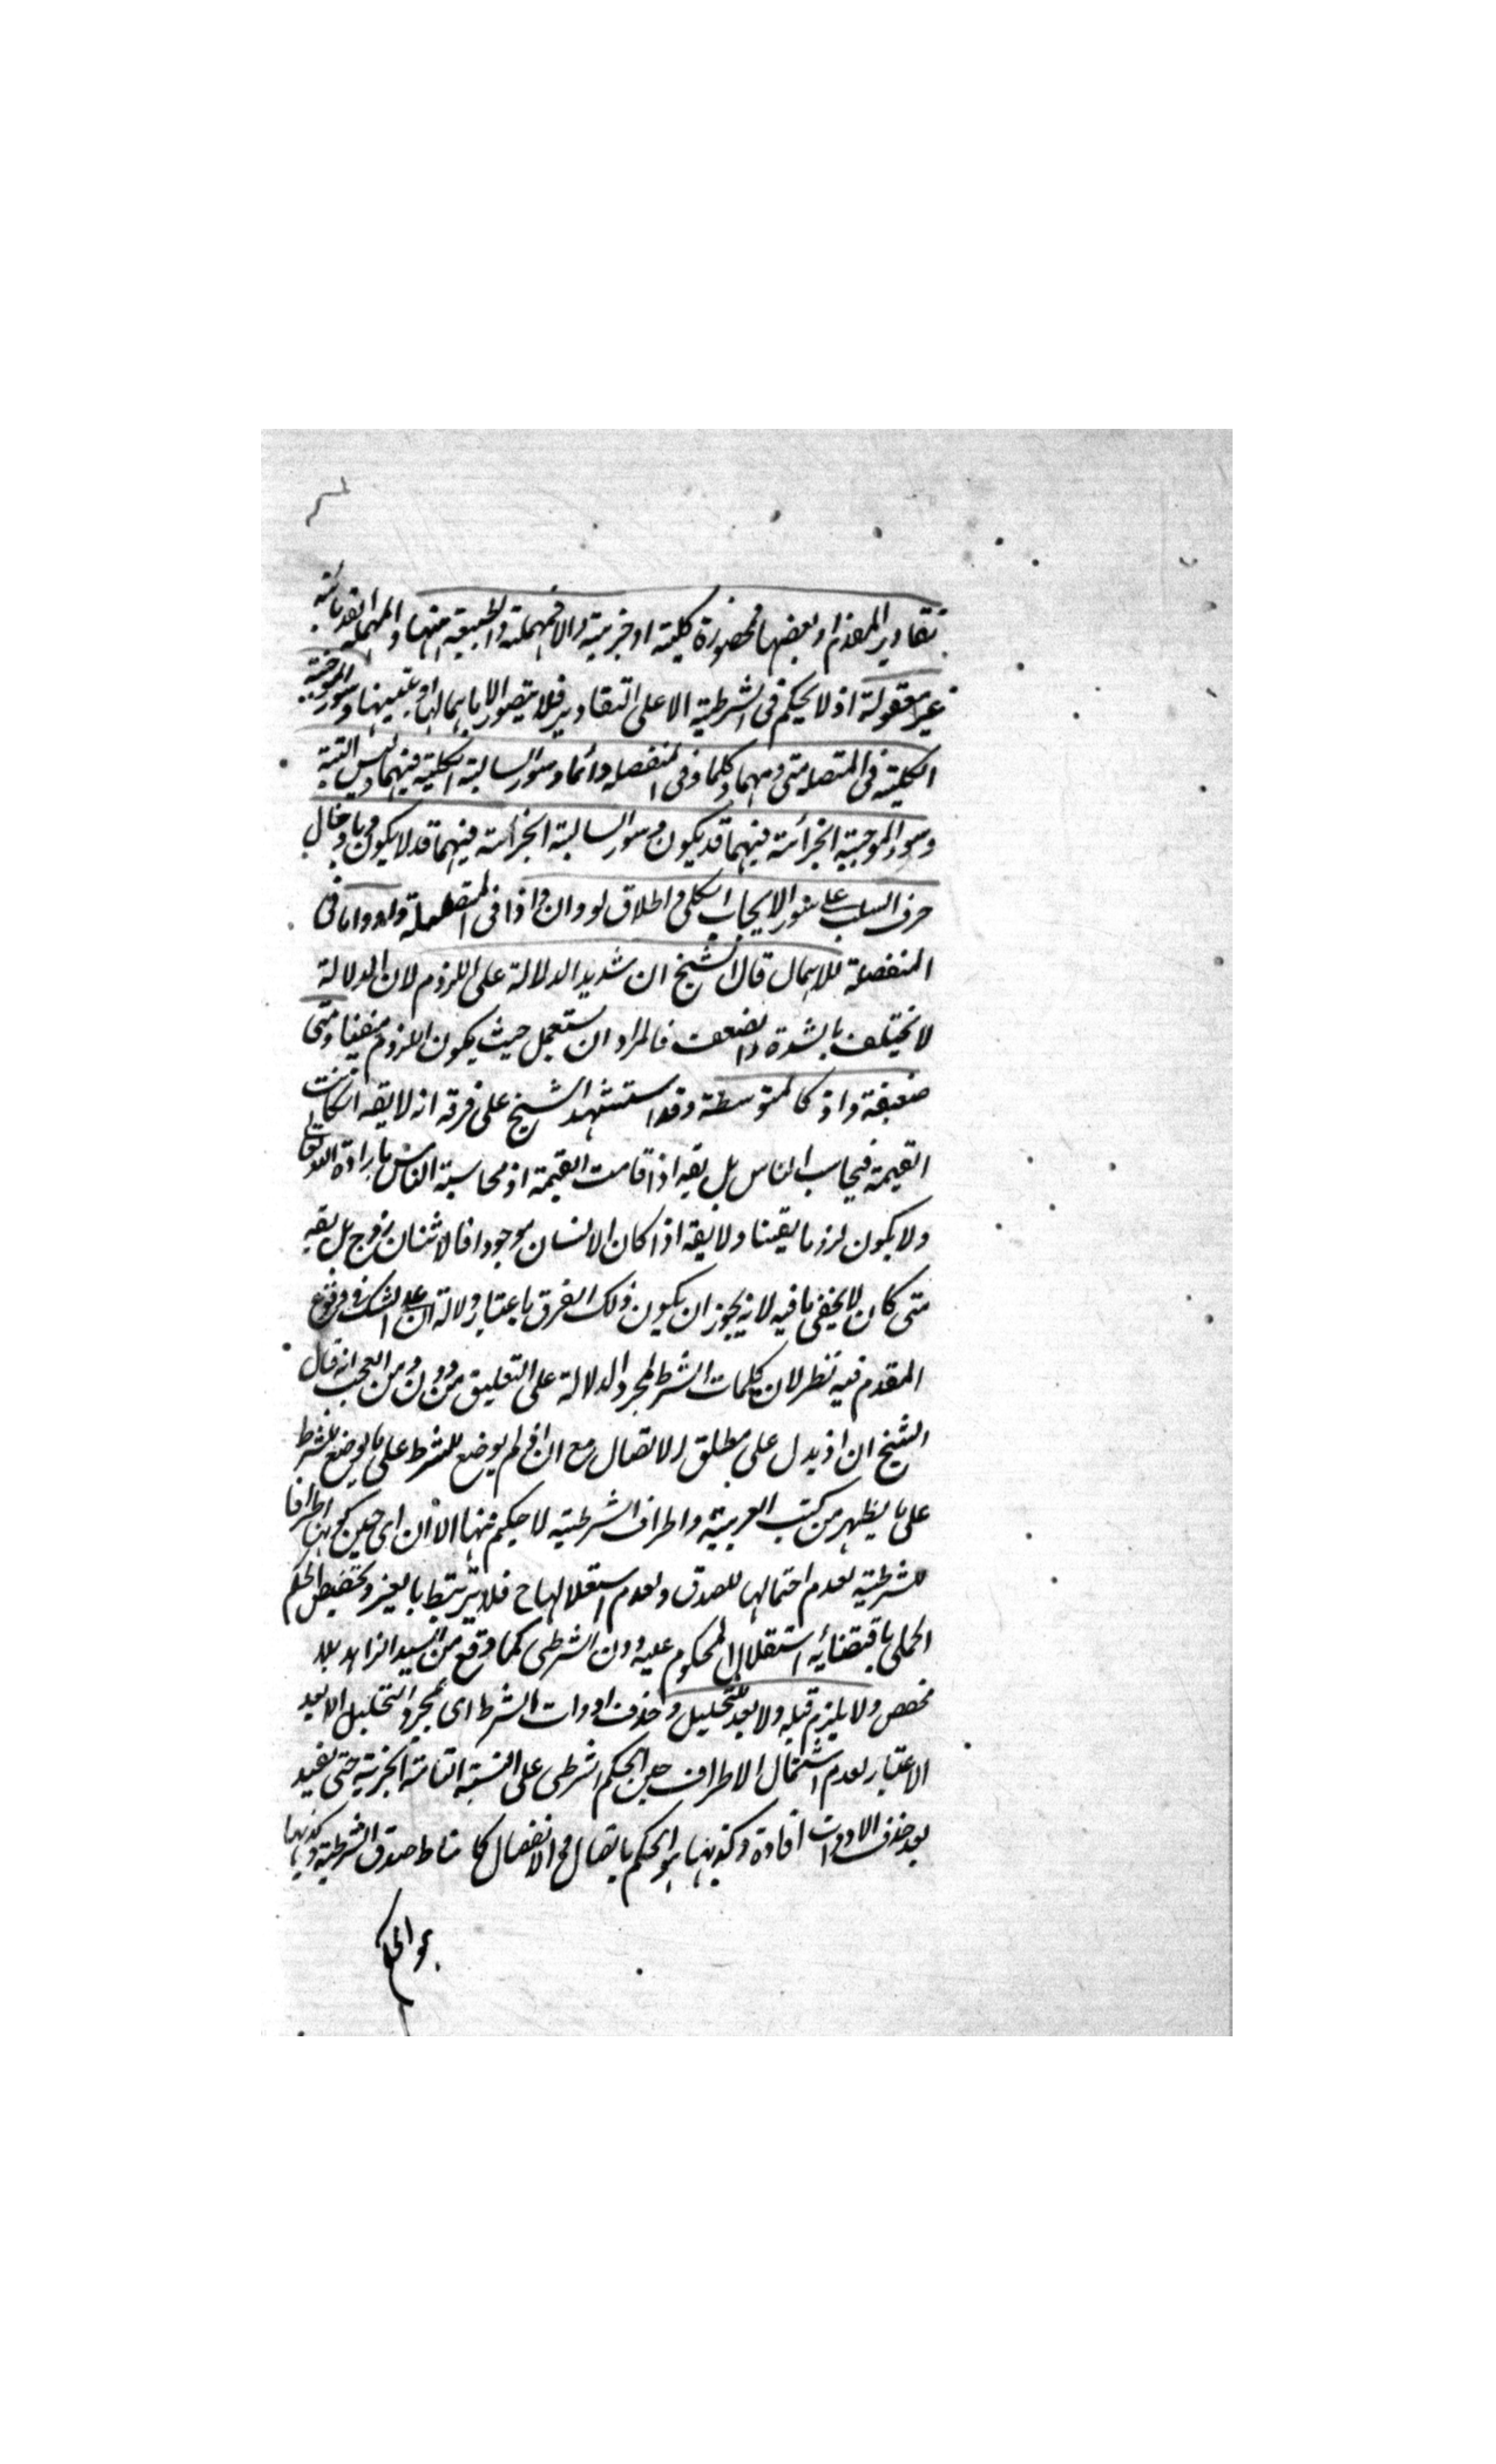 تقادير المقدم او بعضها فمحصورة كلية او جزئية والا فمهملة والطبيعية منها والمهملة القدمائية
غير معقولة اذ لا يحكم فى الشرطية الا على التقادير فلا يتصور الا باهمالها او تعيينها وسور الموجبة
الكلية فى المتصلة متى ومهما وكلما وفى المنفصلة دائما وسور السالبة الكلية فيهما ليس البتة
وسور الموجبة الجزئية فيهما قد يكون وسور السالبة الجزئية فيهما قد لا يكون وبادخال
حرف السلب على سور الايجاب الكلى واطلاق لو وان واذا فى المتصلة واو واما فى
المنفصلة للاهمال قال الشيخ ان شديد الدلالة على اللزوم لان الدلالة
لا تختلف بالشدة والضعف فالمراد ان يستعمل حيث يكون اللزوم متقينا ومتى
ضعيفة واذ كالمتوسطة وقد استشهد الشيخ على فرقه انه لا يقه ان كانت
القيمة فيحاسب الناس بل يقه اذا قامت القيمة اذ محاسبة الناس بارادة الله تعالى
ولا يكون لزوما يقينا ولا يقه اذا كان الانسان موجودا فالاثنان زوج بل يقه
متى كان لا يخفى ما فيه لانه يجوز ان يكون ذلك الفرق باعتبار دلالة ان على الشك فى وقوع
المقدم فيه نظر لان كلمات الشرط لمجرد الدلالة على التعليق من دون ومن العجب انه قال
الشيخ ان اذ يدل على مطلق الاتصال مع ان اذ لم يوضع للشرط على ما يوضع للشرط
على ما يظهر من كتب العربية واطراف الشرطية لا حكم فيها الآن اى حين كونها اطرافا
للشرطية لعدم احتمالها للصدق ولعدم استقلالها ح فلا ترتبط بالغير وتخصيص الحكم
الحملى باقتضائه استقلال المحكوم عليه دون الشرطى كما وقع من السيد الزاهد بلا
مخصص ولا يلزم قبله ولا بعد التحليل وحذف ادوات الشرط اى بمجرد التحليل الا بعد
الاعتبار لعدم اشتمال الاطراف حين الحكم الشرطى على النسبة التامة الخبرية حتى يفيد
بعد حذف الادوات افادة وكذبها هو الحكم بالاتصال والانفصال كما مناط صدق الشرطية وكذبها
هو الحكم